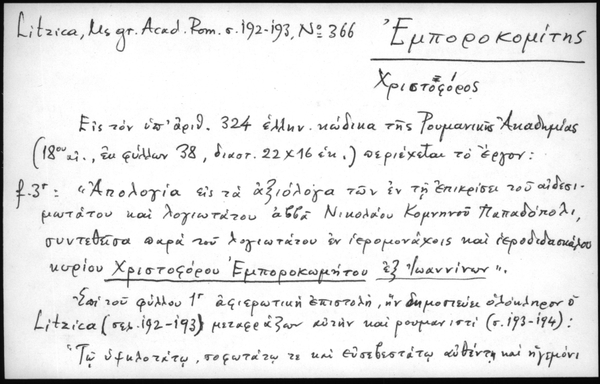 Litzica, Ms gr. Acad. Rom. σ. 192-193, Nº 366
Ἐμποροκομίτης
Χριστοφόρος
Εἰς τὸν ὑπ' ἀριθ. 324 ἑλλην. κώδικα τῆς Ρουμανικῆς Ἀκαδημίας
(18ου αἰ., ἐκ φύλλων 38, διαστ. 22×16 ἑκ.) περιέχεται τὸ ἔργον:
f. 3r: "Ἀπολογία εἰς τὰ ἀξιόλογα τῶν ἐν τῇ ἐπικρίσει τοῦ αἰδεσι-
μωτάτου καὶ λογιωτάτου ἀββᾶ Νικολάου Κομνηνοῦ Παπαδόπολι,
συντεθεῖσα παρὰ τοῦ λογιωτάτου ἐν ἱερομονάχοις καὶ ἱεροδιδασκάλου
κυρίου Χριστοφόρου Ἐμποροκωμήτου ἐξ Ἰωαννίνων".
Ἐπὶ τοῦ φύλλου 1r ἀφιερωτικὴ ἐπιστολή, ἣν δημοσιεύει ὁλόκληρον ὁ
Litzica (σελ. 192-193) μεταφράζων αὐτὴν καὶ ρουμανιστί (σ. 193-194):
"Τῷ ὑψηλοτάτῳ, σοφωτάτῳ τε καὶ εὐσεβεστάτῳ αὐθέντῃ καὶ ἡγεμόνι